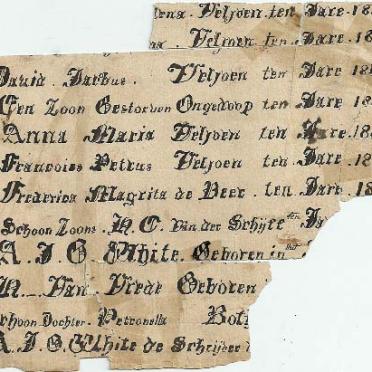 Veljoen ten Jare. 18
Veljoen ten Jare. 18
David. Jacobus. Veljoen ten Jare 18
Een Zoon Gestorven Ongedoop ten Jare. 18
Anna Maria Veljoen ten Jare. 18
Francoies Petrus Veljoen ten Jare. 18
Frederica Magrita de Beer. ten. Jare. 18
Schoon Zoons. H. C. Van der Schijfe ten Ja
A. J. G. White. Geboren in het
N. Van Vrede Geboren
choon Dochter. Petronella Bot
A. J. G. White de Schrijver